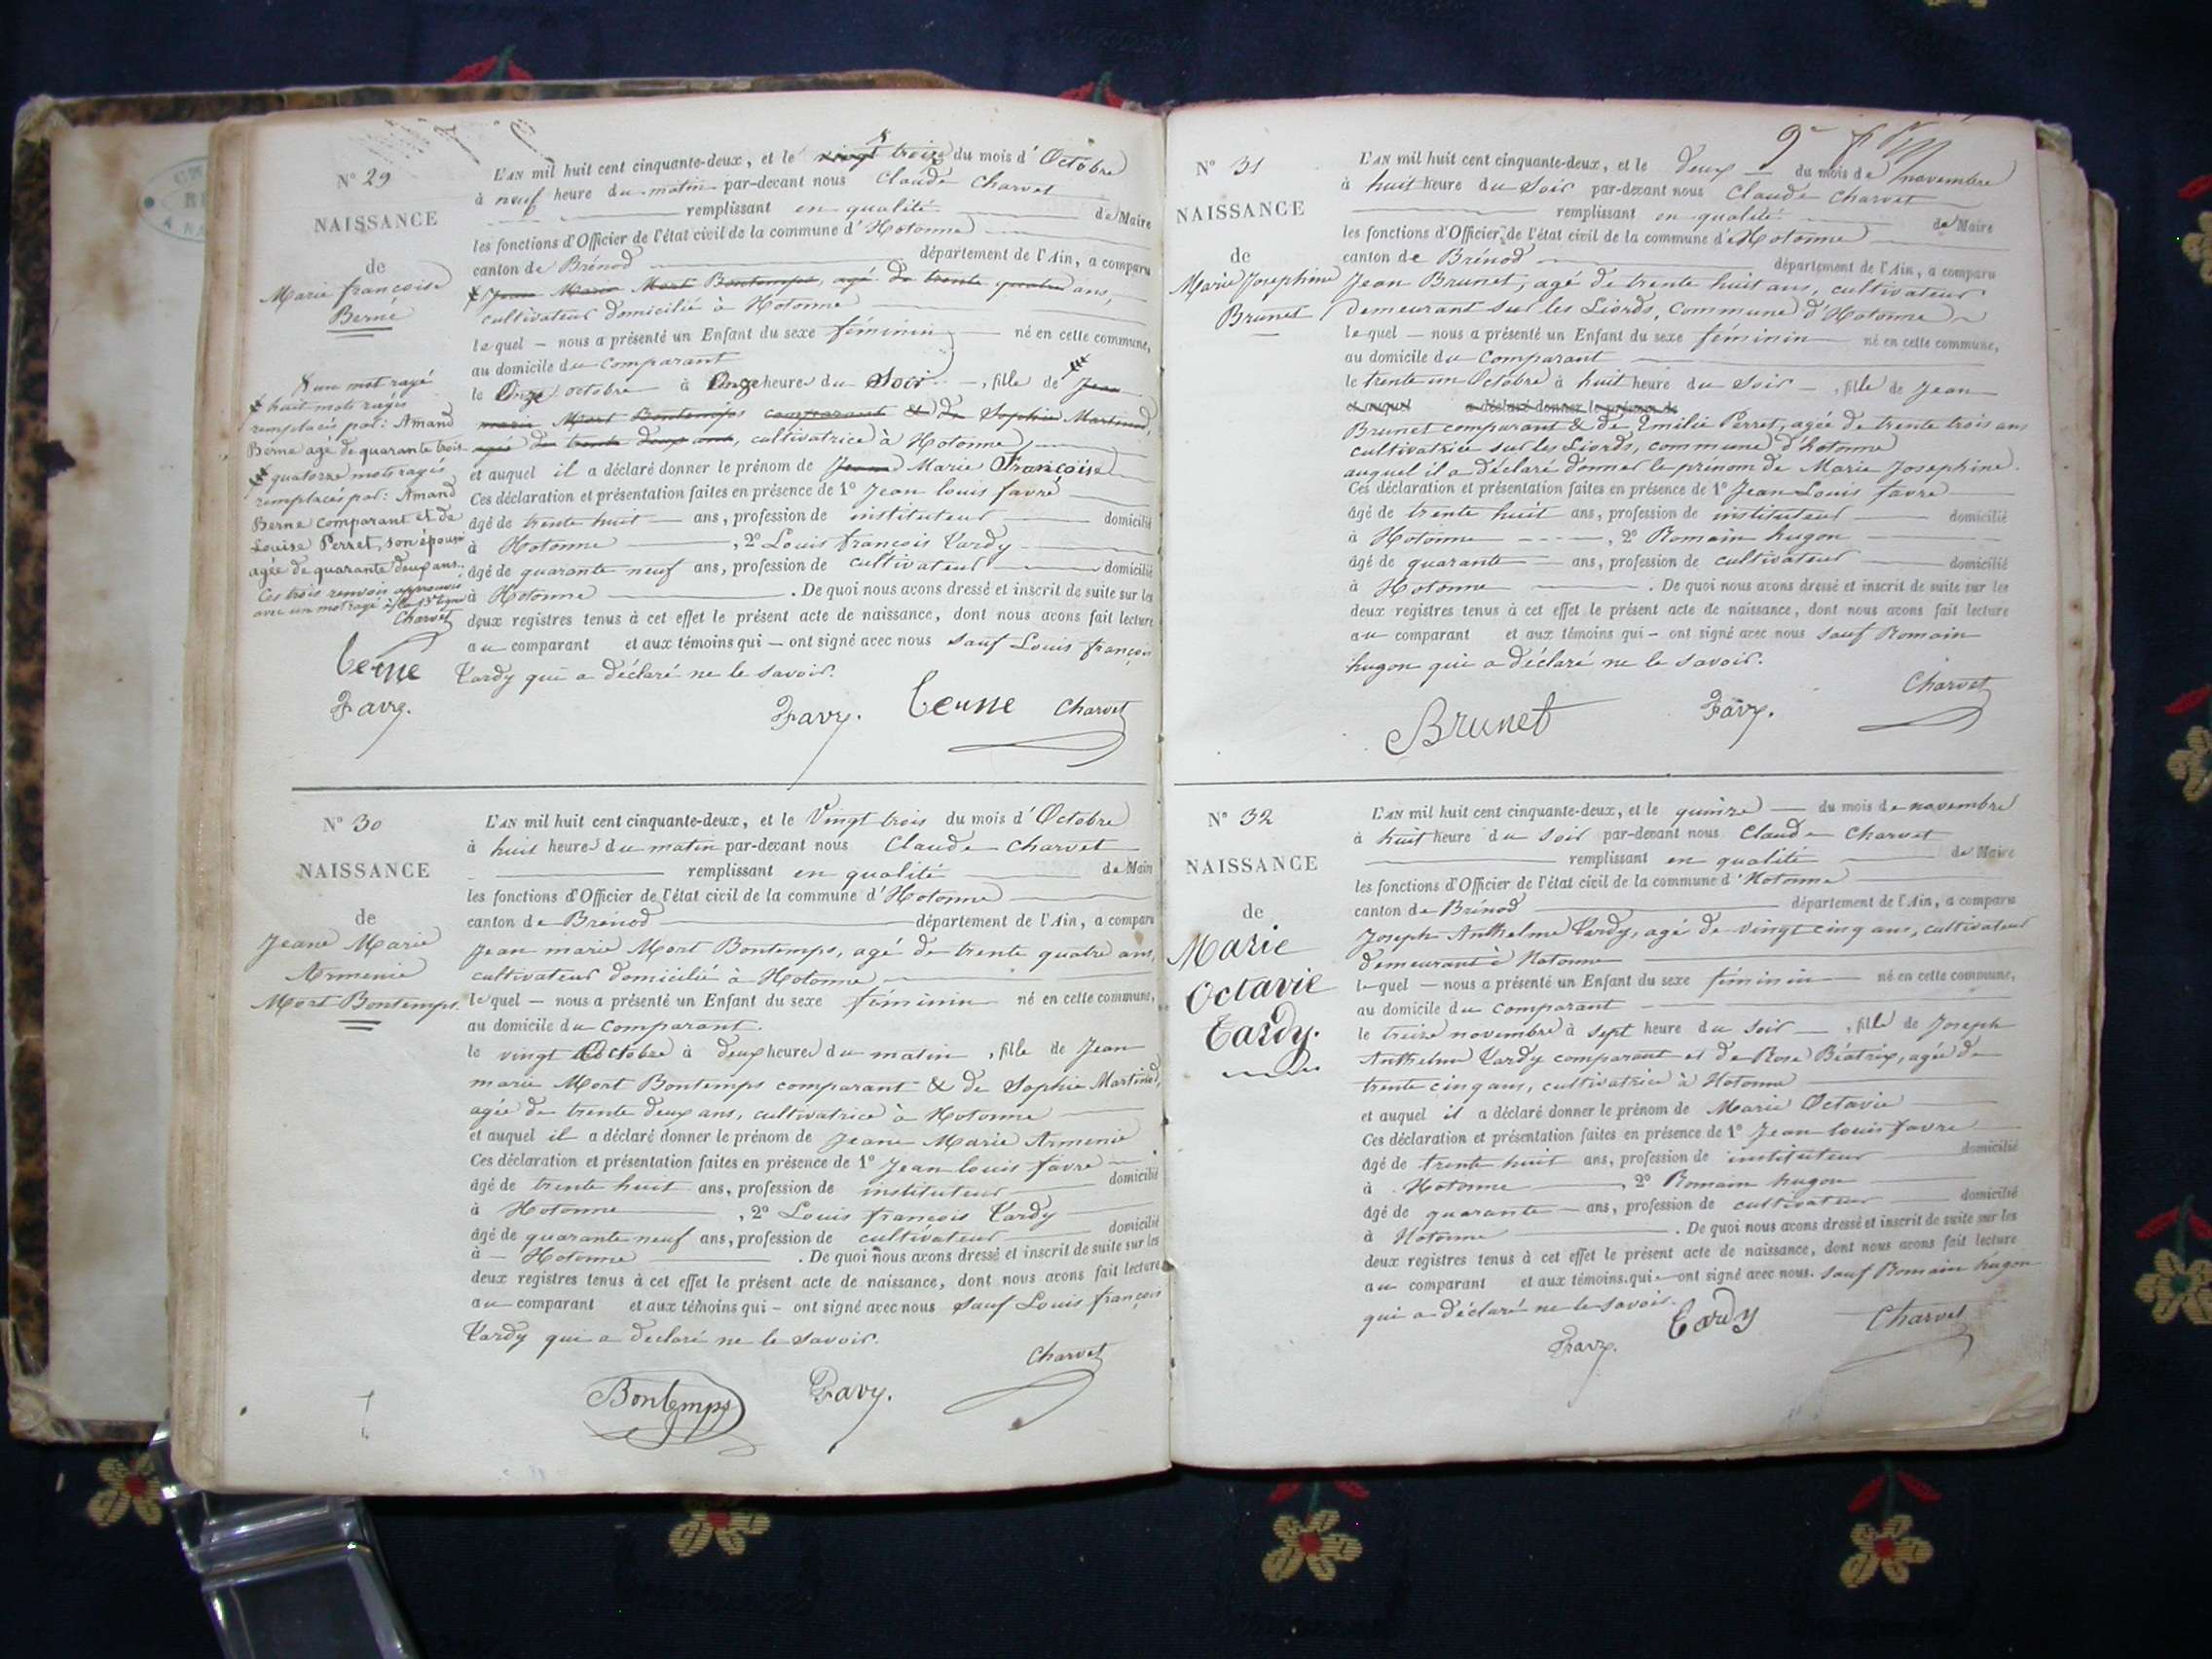 N° 29
NAISSANCE
de
Marie françoise
Berne
X un mot rayé
huit mots rayés
remplacés par: Amand
Berne agé de quarante trois
quatorze mots rayés
remplacés par: Amand
Berne comparant et de
Louise Perret, son épouse
agée de quarante deux ans.
Ces trois renvois approuvés
avec un mot rayé à la
Charvet
Berne
Favre.
L'AN mil huit cent cinquante-deux, et le vingt treize du mois d'Octobre
à neuf heure du matin par-devant nous Claude Charvet
remplissant en qualité de Maire
les fonctions d'Officier de l'état civil de la commune d'Hotonne
canton de Brénod département de l'Ain, a comparu
Jean Marie Mort Bontemps, agé de trente quatre ans,
cultivateur domicilié à Hotonne
lequel – nous a présenté un Enfant du sexe féminin né en cette commune,
au domicile du comparant
le Onze octobre à Onze heure du Soir, fille de Jean
marie Mort Bontemps comparant & de Sophie Martinod,
agée de trente deux ans, cultivatrice à Hotonne
et auquel il a déclaré donner le prénom de Jeane Marie Françoise
Ces déclaration et présentation faites en présence de 1° Jean louis favre
âgé de trente huit ans, profession de instituteur domicilié
à Hotonne, 2° Louis françois Tardy
âgé de quarante neuf ans, profession de cultivateur domicilié
à Hotonne. De quoi nous avons dressé et inscrit de suite sur les
deux registres tenus à cet effet le présent acte de naissance, dont nous avons fait lecture
au comparant et aux témoins qui – ont signé avec nous sauf Louis françois
Tardy qui a déclaré ne le savoir.
Favre. Berne Charvet
N° 30
NAISSANCE
de
Jeane Marie
Armenie
Mort Bontemps.
L'AN mil huit cent cinquante-deux, et le Vingt trois du mois d'Octobre
à huit heures du matin par-devant nous Claude Charvet
remplissant en qualité de Maire
les fonctions d'Officier de l'état civil de la commune d'Hotonne
canton de Brénod département de l'Ain, a comparu
Jean marie Mort Bontemps, agé de trente quatre ans,
cultivateur domicilié à Hotonne
lequel – nous a présenté un Enfant du sexe féminin né en cette commune,
au domicile du comparant.
le vingt Octobre à deux heures du matin, fille de Jean
marie Mort Bontemps comparant & de Sophie Martinod,
agée de trente deux ans, cultivatrice à Hotonne
et auquel il a déclaré donner le prénom de Jeane Marie Armenie
Ces déclaration et présentation faites en présence de 1° Jean louis favre
âgé de trente huit ans, profession de instituteur domicilié
à Hotonne, 2° Louis françois Tardy
âgé de quarante neuf ans, profession de cultivateur domicilié
à – Hotonne. De quoi nous avons dressé et inscrit de suite sur les
deux registres tenus à cet effet le présent acte de naissance, dont nous avons fait lecture
au comparant et aux témoins qui – ont signé avec nous sauf Louis françois
Tardy qui a declaré ne le savoir.
Charvet
Bontemps Favre.
N° 31
NAISSANCE
de
Marie Josephine
Brunet
9e
L'AN mil huit cent cinquante-deux, et le deux du mois de novembre
à huit heure du Soir par-devant nous Claude Charvet
remplissant en qualité de Maire
les fonctions d'Officier de l'état civil de la commune d'Hotonne
canton de Brénod département de l'Ain, a comparu
Jean Brunet, agé de trente huit ans, cultivateur
demeurant sur les Liords, commune d'Hotonne
lequel – nous a présenté un Enfant du sexe féminin né en cette commune,
au domicile du comparant
le trente un Octobre à huit heure du Soir –, fille de Jean
et auquel a déclaré donner le prénom de
Brunet comparant & de Emilie Perret, agée de trente trois ans
cultivatrice sur les Liords, commune d'hotonne
auquel il a déclaré donner le prénom de Marie Josephine.
Ces déclaration et présentation faites en présence de 1° Jean Louis favre
âgé de trente huit ans, profession de instituteur domicilié
à Hotonne, 2° Romain hugon
âgé de quarante ans, profession de cultivateur domicilié
à Hotonne. De quoi nous avons dressé et inscrit de suite sur les
deux registres tenus à cet effet le présent acte de naissance, dont nous avons fait lecture
au comparant et aux témoins qui – ont signé avec nous sauf Romain
hugon qui a déclaré ne le savoir.
Brunet Favre. Charvet
N° 32
NAISSANCE
de
Marie
Octavie
Tardy.
L'AN mil huit cent cinquante-deux, et le quinze du mois de novembre
à huit heure du soir par-devant nous Claude Charvet
remplissant en qualité de Maire
les fonctions d'Officier de l'état civil de la commune d'Hotonne
canton de Brénod département de l'Ain, a comparu
Joseph Anthelme Tardy, agé de vingt cinq ans, cultivateur
demeurant à Hotonne
lequel – nous a présenté un Enfant du sexe féminin né en cette commune,
au domicile du comparant
le treize novembre à sept heure du soir, fille de Joseph
Anthelme Tardy comparant et de Rose Béatrix, agée de
trente cinq ans, cultivatrice à Hotonne
et auquel il a déclaré donner le prénom de Marie Octavie
Ces déclaration et présentation faites en présence de 1° Jean louis favre
âgé de trente huit ans, profession de instituteur domicilié
à Hotonne, 2° Romain hugon
âgé de quarante ans, profession de cultivateur domicilié
à Hotonne. De quoi nous avons dressé et inscrit de suite sur les
deux registres tenus à cet effet le présent acte de naissance, dont nous avons fait lecture
au comparant et aux témoins qui – ont signé avec nous. sauf Romain hugon
qui a déclaré ne le savoir.
Favre. Tardy Charvet